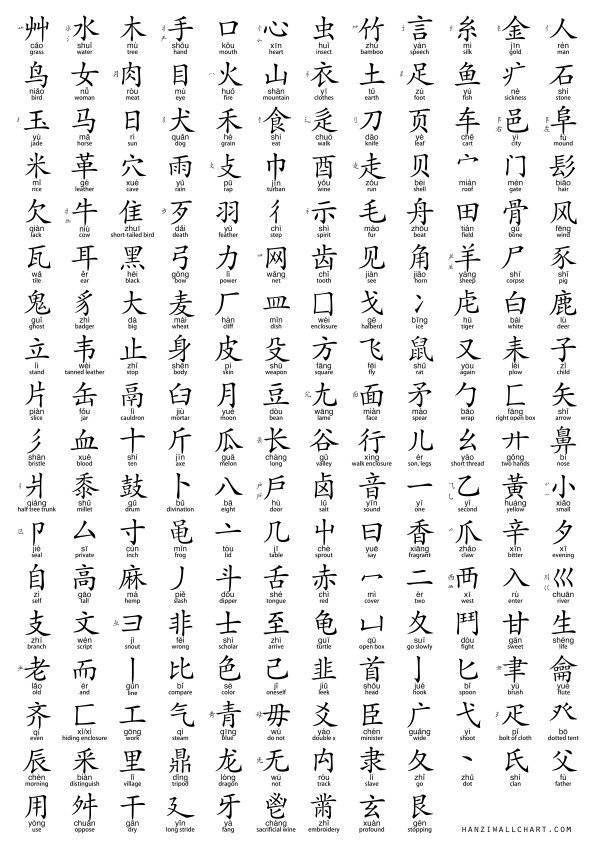 艸 水 木 手 口 心 虫 竹 言 糸 金 人
cǎo shuǐ mù shǒu kǒu xīn huǐ zhú yán mì jīn rén
grass water tree hand mouth heart insect bamboo speech silk gold man
鸟 女 肉 目 火 山 衣 土 足 鱼 疒 石
niǎo nǚ ròu mù huǒ shān yī tǔ zú yú nè shí
bird woman meat eye fire mountain clothes earth foot fish sickness stone
玉 马 日 犬 禾 食 辵 刀 页 车 邑 阜
yù mǎ rì quǎn hé shí chuò dāo yè chē yì fù
jade horse sun dog grain eat walk knife leaf cart city mound
米 革 穴 雨 攴 巾 酉 走 贝 宀 门 髟
mǐ gé xué yǔ pū jīn yǒu zǒu bèi mián mén biāo
rice leather cave rain rap turban wine run shell roof gate hair
欠 牛 隹 歹 羽 彳 示 毛 舟 田 骨 风
qiàn niú zhuī dǎi yǔ chì shì máo zhōu tián gǔ fēng
lack cow short-tailed bird death feather step spirit fur boat field bone wind
瓦 耳 黑 弓 力 网 齿 见 角 羊 尸 豕
wǎ ěr hēi gōng lì wǎng chǐ jiàn jiǎo yáng shī shǐ
tile ear black bow power net tooth see horn sheep corpse pig
鬼 豸 大 麦 厂 皿 囗 戈 冫 虍 白 鹿
guǐ zhì dà mài hàn mǐn wéi gē bīng hū bái lù
ghost badger big wheat cliff dish enclosure halberd ice tiger white deer
立 韦 止 身 皮 殳 方 飞 鼠 又 耒 子
lì wéi zhǐ shēn pí shū fāng fēi shǔ yòu lěi zǐ
stand tanned leather stop body skin weapon square fly rat again plow child
片 缶 鬲 臼 月 豆 尢 面 矛 勹 匚 矢
piàn fǒu lì jiù yuè dòu wāng miàn máo bāo fāng shǐ
slice jar cauldron mortar moon bean lame face spear wrap right open box arrow
彡 血 十 斤 瓜 长 谷 行 儿 幺 廾 鼻
shān xuè shí jīn guā cháng gǔ xíng ér yāo gǒng bí
bristle blood ten axe melon long valley walk enclosure son, legs short thread two hands nose
爿 黍 鼓 卜 八 戶 卤 音 一 乙 黃 小
qiáng shǔ gǔ bǔ bā hù lǔ yīn yī yǐ huáng xiǎo
half tree trunk millet drum divination eight door salt sound one second yellow small
卩 厶 寸 黾 亠 几 屮 曰 香 爪 辛 夕
jié sī cùn mǐn tóu jǐ chè yuē xiāng zhǎo xīn xī
seal private inch frog lid table sprout say fragrant claw bitter evening
自 高 麻 丿 斗 舌 赤 冖 二 襾 入 巛
zì gāo má piě dǒu shé chì mì èr xī rù chuān
self tall hemp slash dipper tongue red cover two west enter river
支 文 彐 非 士 至 龟 凵 夊 鬥 甘 生
zhī wén jì fēi shì zhì guī qū suī dòu gān shēng
branch script snout wrong scholar arrive turtle open box go slowly fight sweet life
老 而 丨 比 色 己 韭 首 亅 匕 聿 龠
lǎo ér gǔn bǐ sè jǐ jiǔ shǒu jué bǐ yù yuè
old and line compare color oneself leek head hook spoon brush flute
齐 匸 工 气 青 毋 爻 臣 广 弋 疋 癶
qí xǐ/xì gōng qì qīng wú yáo chén guǎng yì pǐ bō
even hiding enclosure work steam blue do not double x minister wide shoot bolt of cloth dotted tent
辰 釆 里 鼎 龙 无 禸 隶 夂 丶 氏 父
chén biàn lǐ dǐng lóng wú róu lì zhǐ diǎn shì fù
morning distinguish village tripod dragon not track slave go dot clan father
用 舛 干 廴 牙 鬯 黹 玄 艮
yòng chuǎn gān yǐn yá chàng zhǐ xuán gēn
use oppose dry long stride fang sacrificial wine embroidery profound stopping
HANZIWALLCHART.COM